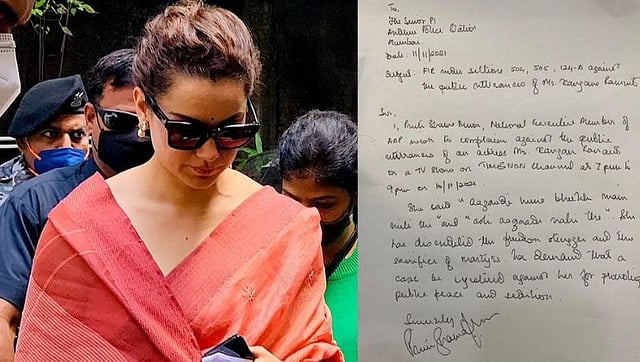 To,
The Senior PI
Andheri Police Station
Mumbai.
Date: 11/11/2021
Subject: FIR under sections 504, 505, 124-A against
the public utterances of Ms. Kangana Ranaut
Sir,
I, Preeti Sharma Menon, National Executive Member of
AAP wish to complain against the public
utterances of an actress Ms. Kangana Ranaut
on a TV show on TIMESNOW channel at 7 pm to
9 pm on 10/11/2021
She said "aazaadi hume bheekh main
mili thi" and "asli aazaadi nahi thi". She
has discredited the freedom struggle and the
sacrifice of martyrs. We demand that a
case be registered against her for provoking
public peace and sedition.
Sincerely